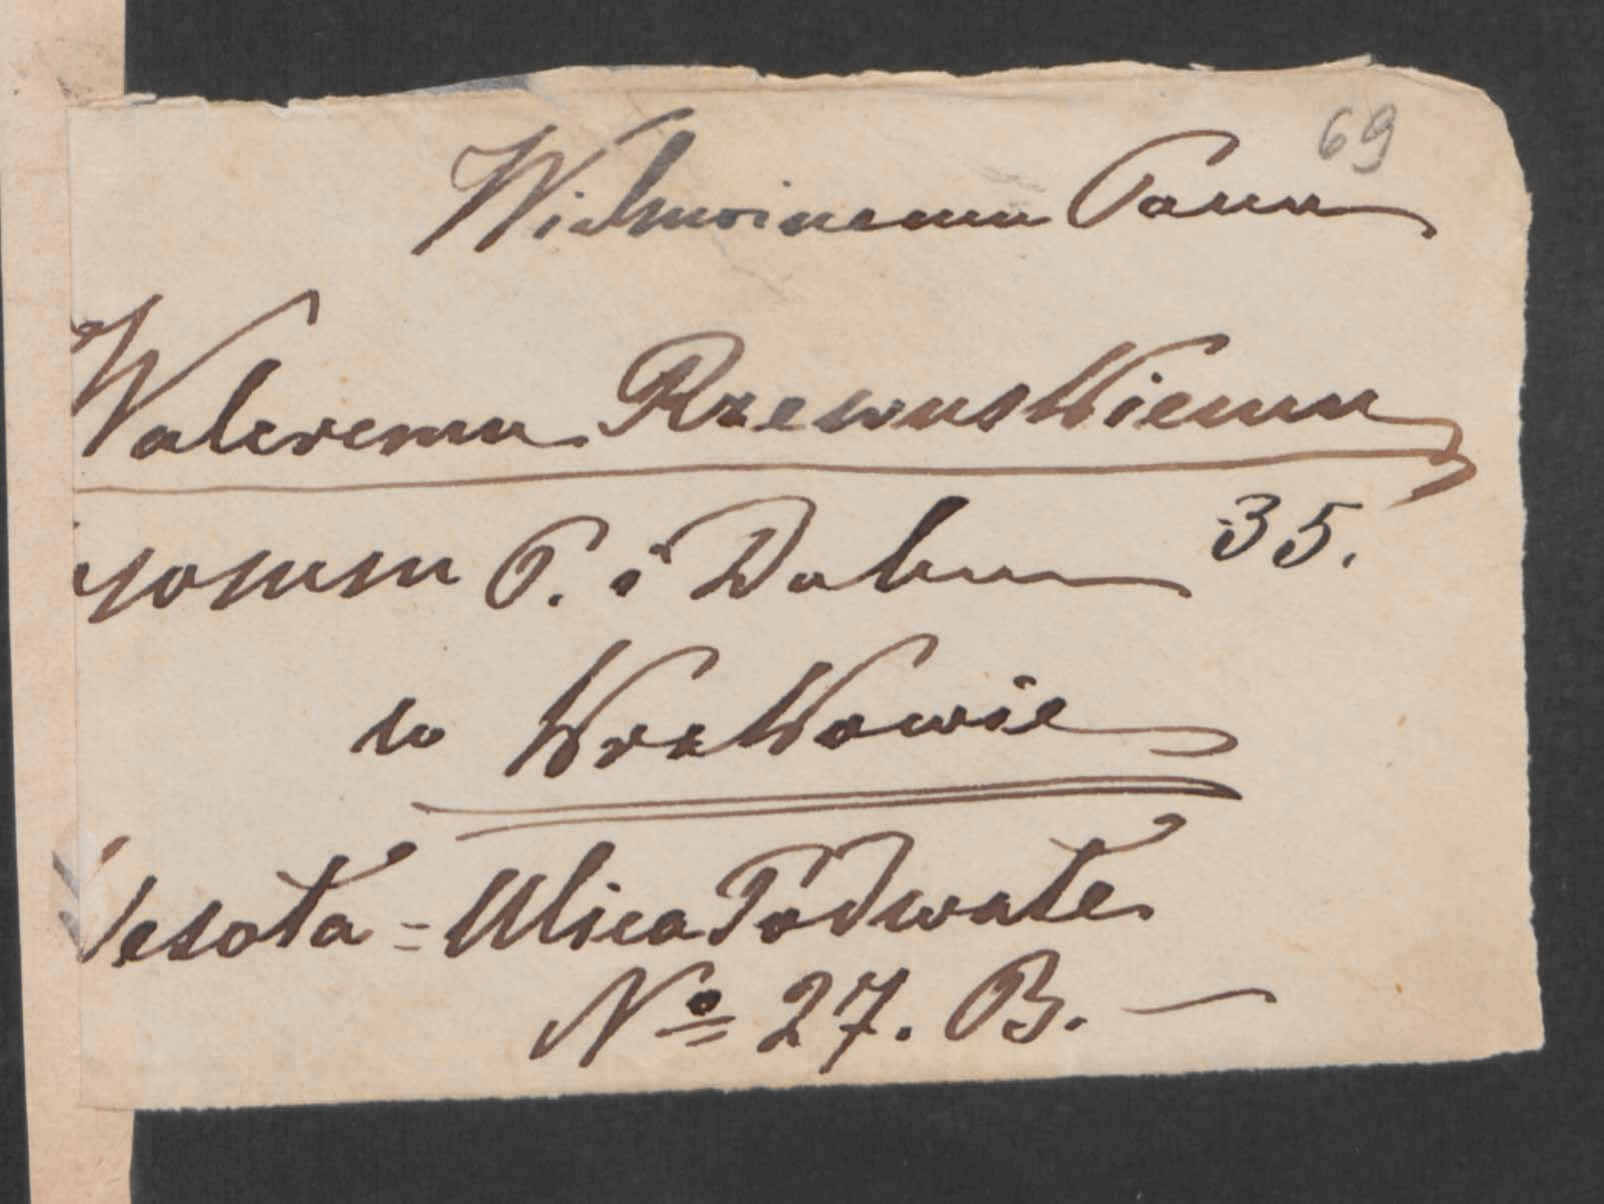 69
Wielmożnemu Panu
Waleremu Rzewuskiemu
P. i Dobr. 35.
w Krakowie
Wesoła = Ulica Podwale
No 27. B. —